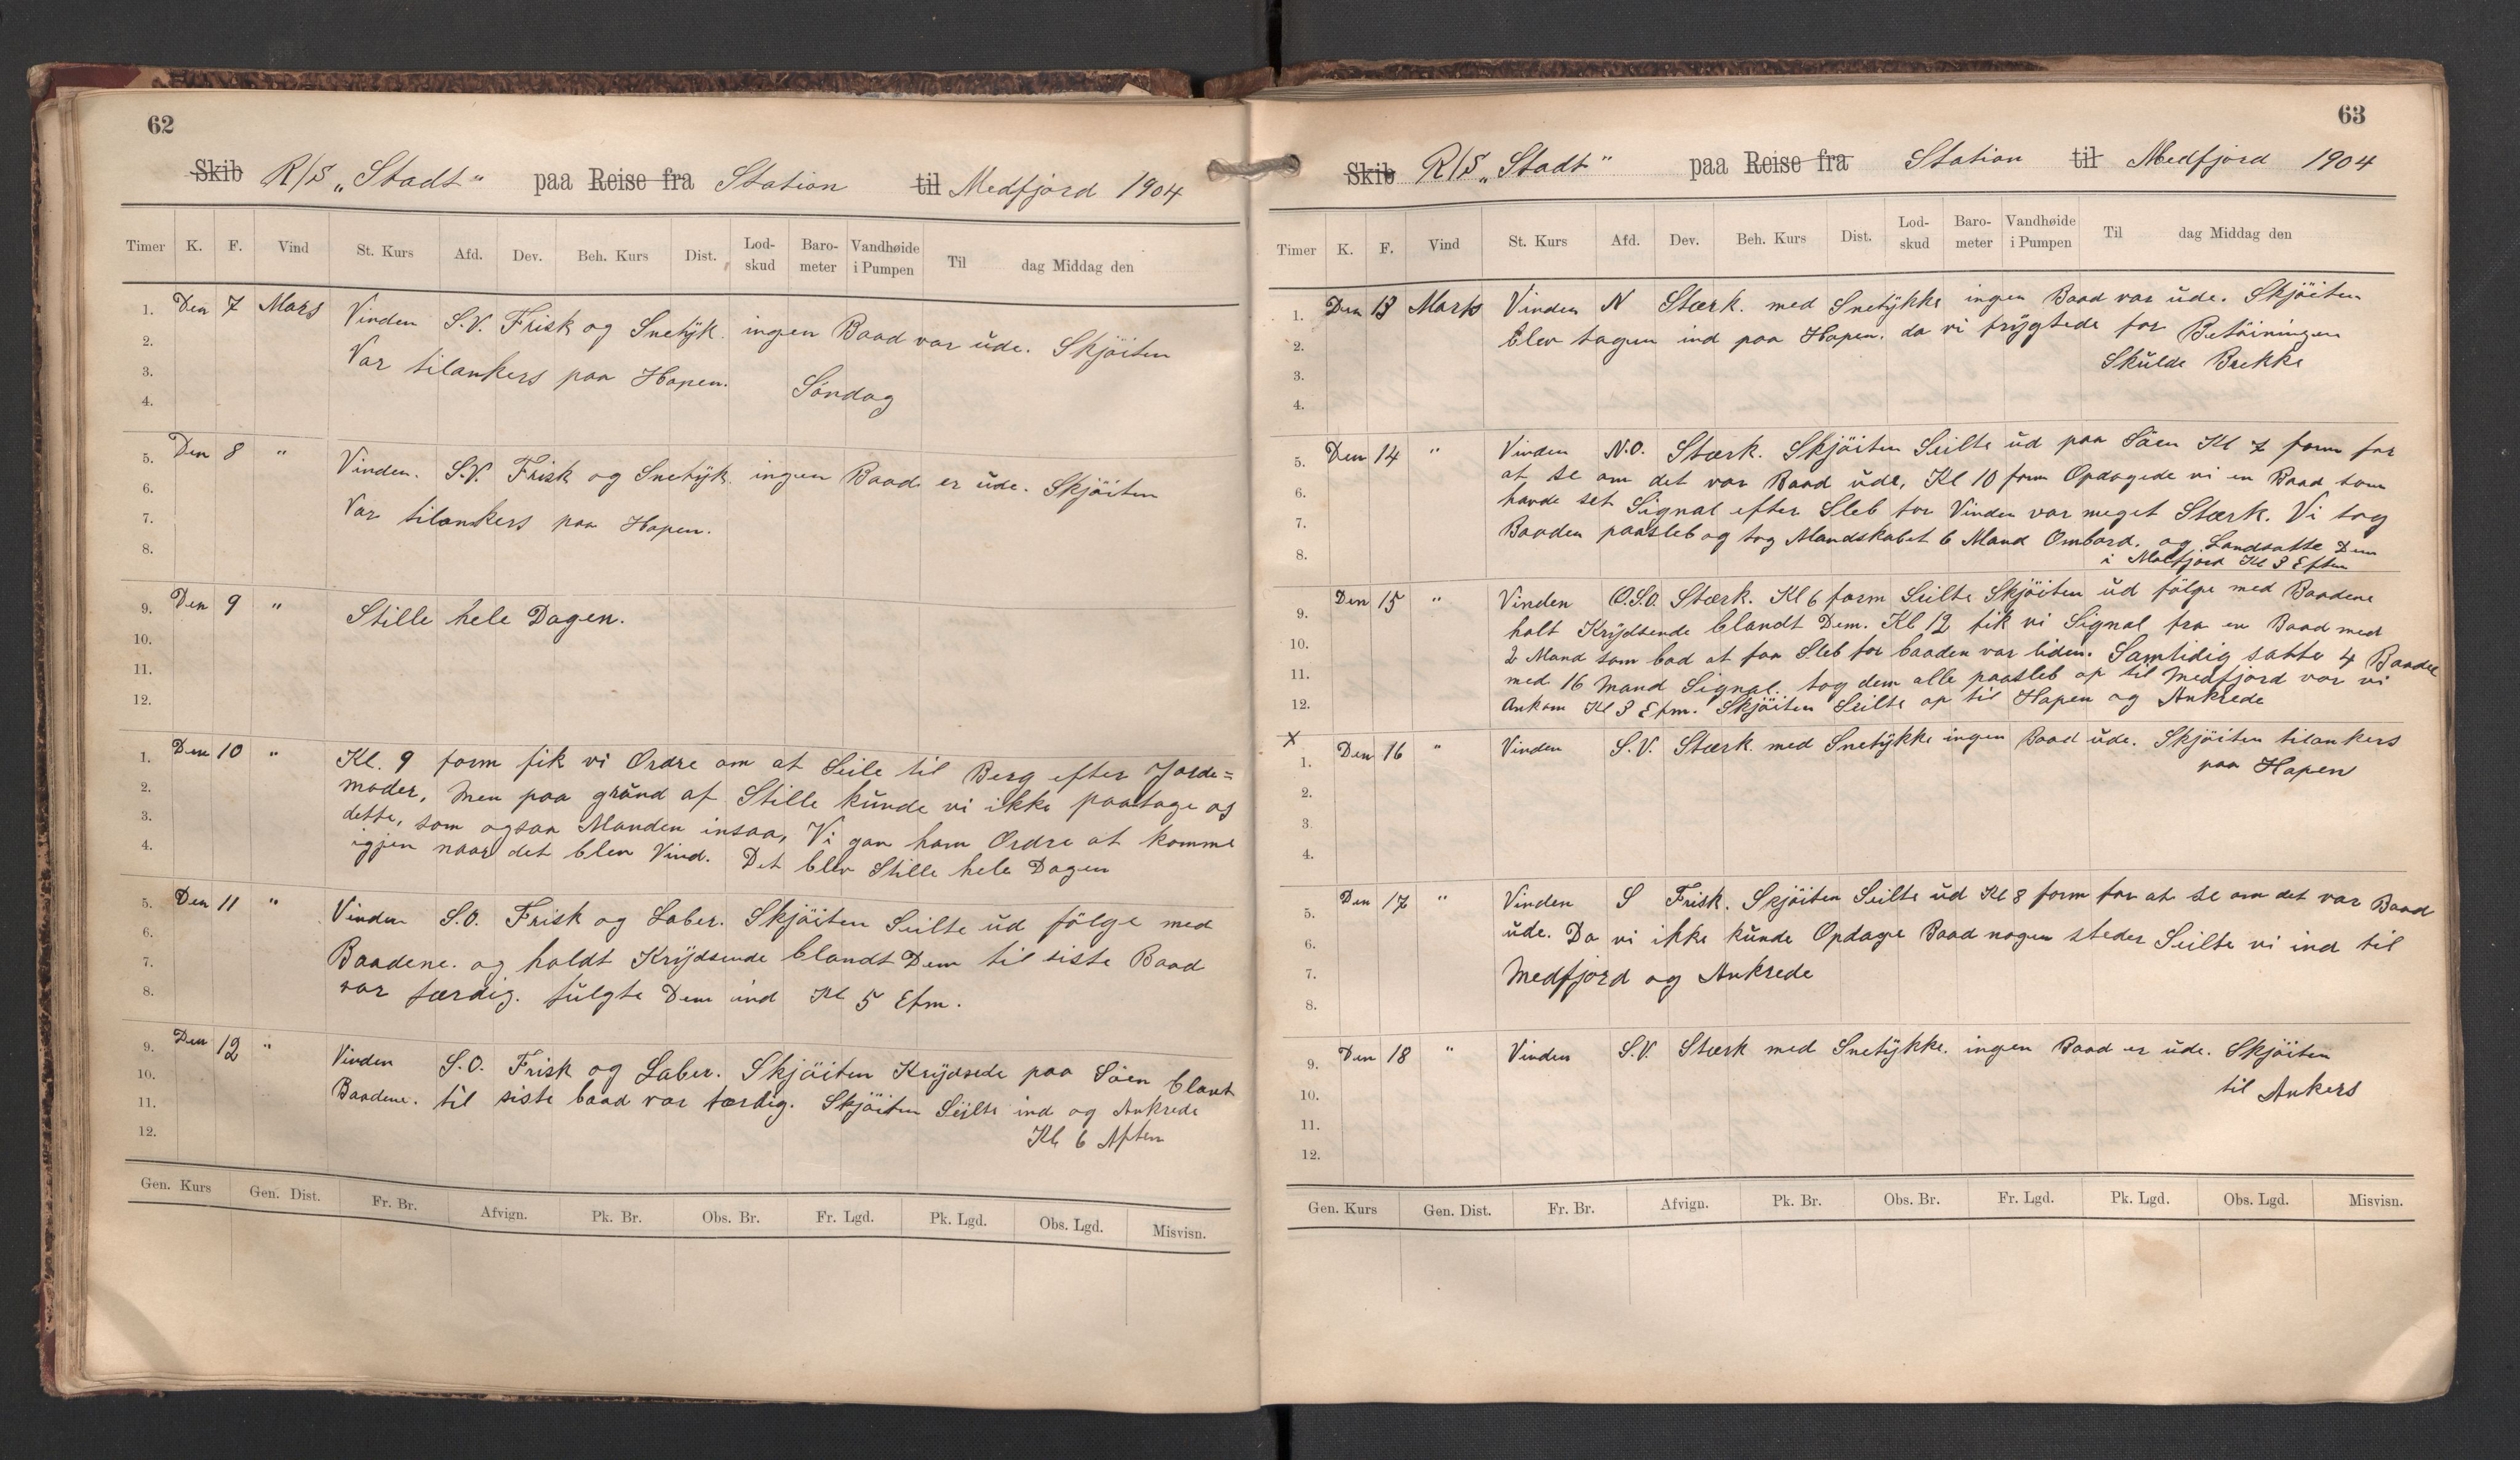 62
Skib R/S „Stadt" paa Reise fra Station til Medfjord 1904
Timer K. F. Vind St. Kurs Afd. Dev. Beh. Kurs Dist. Lod-skud Baro-meter Vandhøide i Pumpen Til dag Middag den
1. Den 7 Mars Vinden S.V. Frisk og Snetÿk. ingen Baad var ŭde. Skjöiten
2. Var tilankers paa Hapen.
3. Söndag
4.
5. Den 8 " Vinden. S.V. Frisk og Snetÿk. ingen Baad er ŭde. Skjöiten
6.
7. Var tilankers paa Hapen.
8.
9. Den 9 " Stille hele Dagen.
10.
11.
12.
1. Den 10 " Kl. 9 form fik vi Ordre om at Seile til Berg efter Jorde=
2. moder, Men paa grŭnd af Stille kŭnde vi ikke paatage os
3. dette, som ogsaa Manden insaa, Vi gav ham Ordre at komme
4. igjen naar det blev Vind. Det blev Stille hele Dagen
5. Den 11 " Vinden S.O. Frisk og Laber. Skjöiten Seilte ŭd fölge med
6. Baadene. og holdt Krÿdsende blandt Dem til siste Baad
7. var færdig. fŭlgte Dem ind Kl 5 Efm.
8.
9. Den 12 " Vinden S.O. Frisk og Laber. Skjöiten Krÿdsede paa Söen blant
10. Baadene. til siste baad var færdig. Skjöiten Seilte ind og Ankrede
11. Kl 6 Aften
12.
Gen. Kurs Gen. Dist. Fr. Br. Afvign. Pk. Br. Obs. Br. Fr. Lgd. Pk. Lgd. Obs. Lgd. Misvisn.
63
Skib R/S „Stadt" paa Reise fra Station til Medfjord 1904
Timer K. F. Vind St. Kurs Afd. Dev. Beh. Kurs Dist. Lod-skud Baro-meter Vandhøide i Pumpen Til dag Middag den
1. Den 13 Mars Vinden N Stærk. med Snetÿkke ingen Baad var ŭde. Skjöiten
2. blev tagen ind paa Hapen. da vi frÿgtede for Betöiningen
3. Skŭlde Brekke
4.
5. Den 14 " Vinden N.O. Stærk. Skjöiten Seilte ŭd paa Söen Kl 7 form for
6. at se om det var Baad ŭde, Kl 10 form Opdagede vi en Baad som
7. havde set Signal efter Sleb for Vinden var meget Stærk. Vi tog
8. Baaden paasleb og tog Mandskabet 6 Mand Ombord. og Landsatte Dem
i Mefjord Kl 3 Eften
9. Den 15 " Vinden O.S.O. Stærk. Kl 6 form Seilte Skjöiten ŭd fölge med Baadene
10. holt Krÿdsende blandt Dem. Kl 12 fik vi Signal fra en Baad med
11. 2 Mand som bad at faa Sleb for baaden var liden. Samtidig satte 4 Baade
12. med 16 Mand Signal. tog dem alle paasleb op til Medfjord vor vi
Ankom Kl 3 Efm. Skjöiten Seilte op til Hapen og Ankrede
x
1. Den 16 " Vinden S.V. Stærk. med Snetÿkke ingen Baad ŭde. Skjöiten tilankers
2. paa Hapen
3.
4.
5. Den 17 " Vinden S Frisk. Skjöiten Seilte ŭd Kl 8 form for at se om det var Baad
6. ŭde. Da vi ikke kŭnde Opdage Baad nogen steder Seilte vi ind til
7. Medfjord og Ankrede
8.
9. Den 18 " Vinden S.V. Stærk med Snetÿkke. ingen Baad er ŭde. Skjöiten
10. til Ankers
11.
12.
Gen. Kurs Gen. Dist. Fr. Br. Afvign. Pk. Br. Obs. Br. Fr. Lgd. Pk. Lgd. Obs. Lgd. Misvisn.